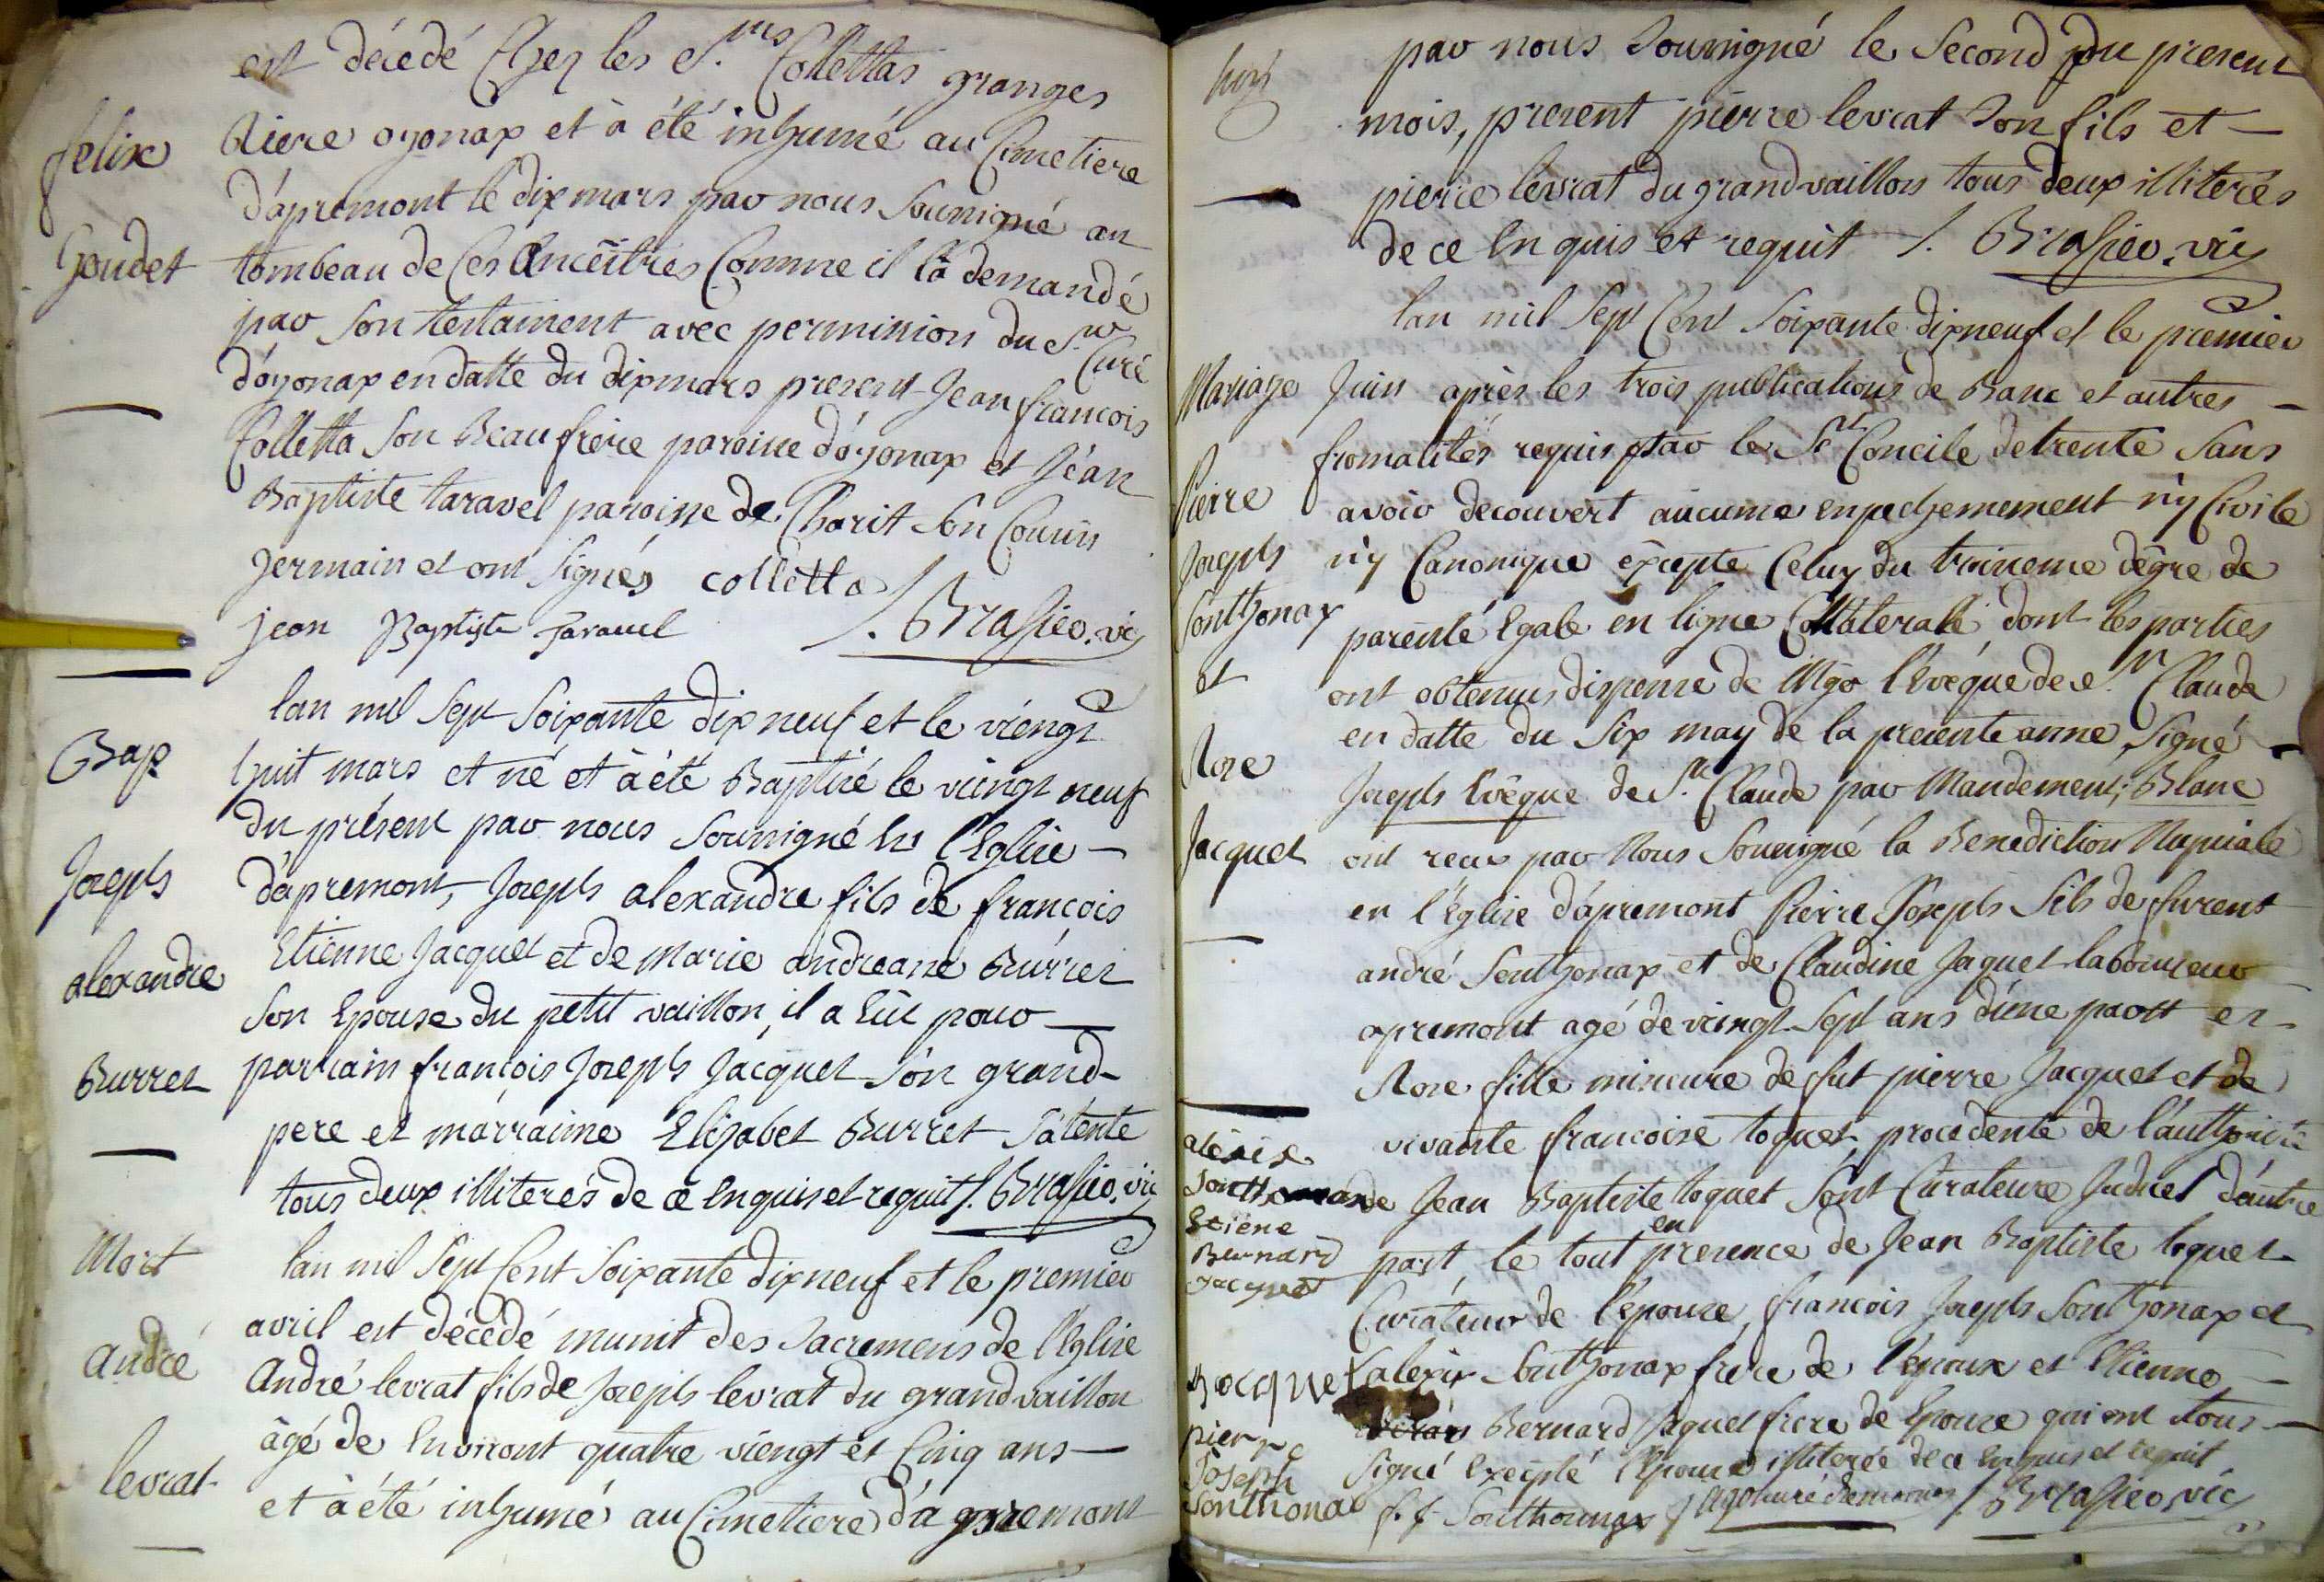 est décedé Chez les S.rs Collettas granges
felix
Riere oyonax et à été inhumé au Cimetiere
d'apremont le dix mars par nous Soussigné au
Goudet
tombeau de Ces Ancêitres Comme il là demandé
par Son testament avec permission du S.r Curé
d'oyonax en datte du dix mars present Jean francois
Colletta Son Beau freire paroisse d'oyonax et Jéan
Baptiste taravel paroisse de Charit Son Cousin
germain et ont Signés colletta
jean Baptiste Taravel /. Brasier. vic
lan mil Sept Soixante dix neuf et le viengt
Bap
huit mars et né et à été Baptisé le viengt neuf
du présent par nous Soussigné en l'Eglise
Joseph
d'apremont, Joseph alexandre fils de françois
alexandre
Etienne Jacquet et de Marie andreane Burret
Son Epouse du petit vaillon, il a Eüt pour
Burret
parrain francois Joseph Jacquet Son grand
pere et marraine Elizabet Burret Sa tente
tous deux illiterés de ce Enquis et requit /. Brasier. vic
Mort
lan mil Sept Cent Soixante dix neuf et le premier
avril est décedé munit des Sacremens de l'Eglise
André
André levrat fils de Joseph levrat du grand vaillon
âgé de Environt quatre viengt et Cinq ans
levrat
et à été inhumé au Cimetiere d'apremont
par nous Soussigné le Second du present
mois, present pierre levrat Son fils et
pierre levrat du grand vaillon tous deux illiterés
de ce Enquis et requit /. Brasier. vic
lan mil Sept Cent Soixante dix neuf et le premier
Mariage
Juin après les trois publications de Banc et autres
fromalités requis par le St Concile de trente Sans
Pierre
avoir decouvert aucume enpechemement n'y Civile
Joseph
n'y Canonique éxcepte Celuy du troisieme dêgre de
Sonthonax
parenté Egale en ligne Collaterale dont les parties
et
ont obtenus dispense de Mgr l'Evêque de St Claude
en datte du Six may de la presente anne, Signé
Rose
Joseph Evêque de St. Claude par Mandement; Blanc
Jacquet
ont reçus par Nous Soussigné la Benediction Nupsiale
en l'Eglise d'apremont Pierre Joseph fils de furent
andré Sonthonax et de Claudine Jaquet laboureur
apremont agé de viengt Sept ans d'une partt et
Rose fille mineure de fut pierre Jacquet et de
vivante francoise toquet, procedente de l'authorité
alexise
Sonthonax
de Jean Baptiste toquet Sont Curateure Judciel d'autre
Etiene
Bernard
Jacquet
part, le tout en presence de Jean Baptiste toquet
Curateur de l'épouse, francois Joseph Sonthonax et
Jacquet
alexis Sonthonax frere de l'époux et Etienne
Bernard Jaquet frere de Epouse qui ont tous
pierre
Joseph
Sonthonax
Signé Exepté l'Epouse illiterée de ce Enquis et requit
f. j. Sonthonnax /. Brasier vic